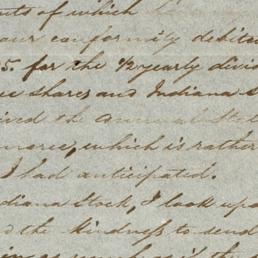 of which
our conformity debited
5. for the ½ yearly divi
shares and Indiana S
ived the
which is rather
I had anticipated.
diana Stock, I look upo
d the kindness to send